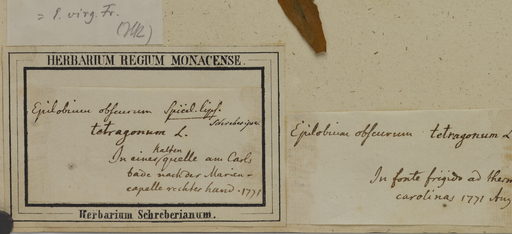 = P. virg. Fr.
HERBARIUM REGIUM MONACENSE.
Epilobium obscurum Spicil. Lips.
Schreber ipse.
tetragonum L.
kalten
In einer quelle am Carls
bade nach der Marien
capelle rechter hand. 1771
Herbarium Schreberianum.
Epilobium obscurum tetragonum L
In fonte frigido ad therm
carolinas 1771 Aug